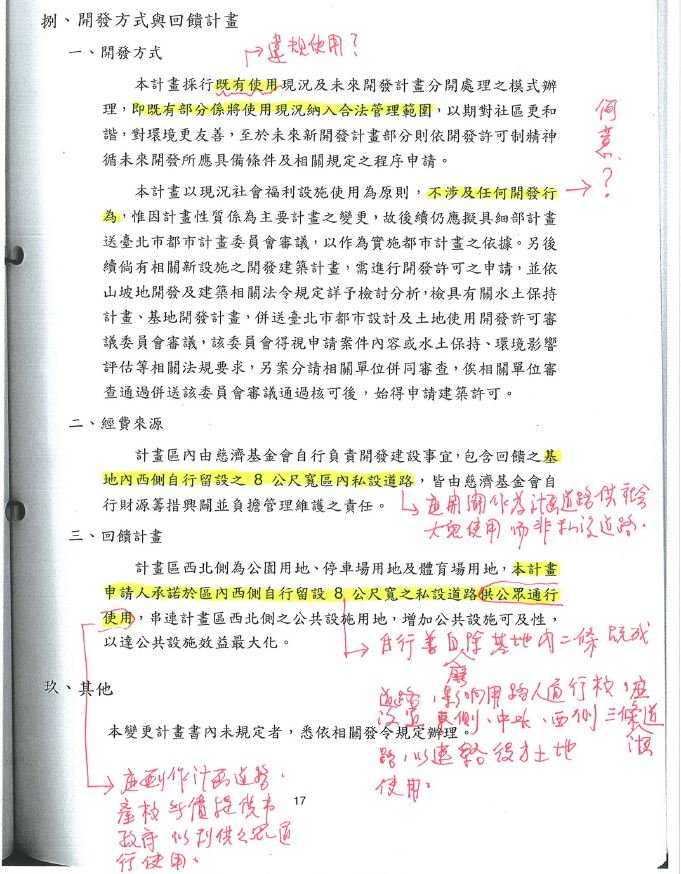 捌、開發方式與回饋計畫
→違規使用?
一、開發方式
本計畫採行既有使用現況及未來開發計畫分開處理之模式辦
理，即既有部分係將使用現況納入合法管理範圍，以期對社區更和
諧，對環境更友善，至於未來新開發計畫部分則依開發許可制精神
循未來開發所應具備條件及相關規定之程序申請。
本計畫以現況社會福利設施使用為原則，不涉及任何開發行
→何意?
為，惟因計畫性質係為主要計畫之變更，故後續仍應擬具細部計畫
送臺北市都市計畫委員會審議，以作為實施都市計畫之依據。另後
續倘有相關新設施之開發建築計畫，需進行開發許可之申請，並依
山坡地開發及建築相關法令規定詳予檢討分析，檢具有關水土保持
計畫、基地開發計畫，併送臺北市都市設計及土地使用開發許可審
議委員會審議，該委員會得視申請案件內容或水土保持、環境影響
評估等相關法規要求，另案分請相關單位併同審查，俟相關單位審
查通過併送該委員會審議通過核可後，始得申請建築許可。
二、經費來源
計畫區內由慈濟基金會自行負責開發建設事宜，包含回饋之基
地內西側自行留設之 8 公尺寬區內私設道路，皆由慈濟基金會自
行財源籌措興闢並負擔管理維護之責任。
應開闢作為計畫道路供社會
大眾使用而非私設道路。
三、回饋計畫
計畫區西北側為公園用地、停車場用地及體育場用地，本計畫
申請人承諾於區內西側自行留設 8 公尺寬之私設道路供公眾通行
使用，串連計畫區西北側之公共設施用地，增加公共設施可及性，
以達公共設施效益最大化。
自行著自廢除基地內二條既成
道路，影響用路人通行權，應
設置東側、中央、西側三條道
路，以連絡後方土地
使用。
玖、其他
本變更計畫書內未規定者，悉依相關發令規定辦理。
應劃作計畫道路，
產權無償提供市
政府以利供公眾通
行使用。
17